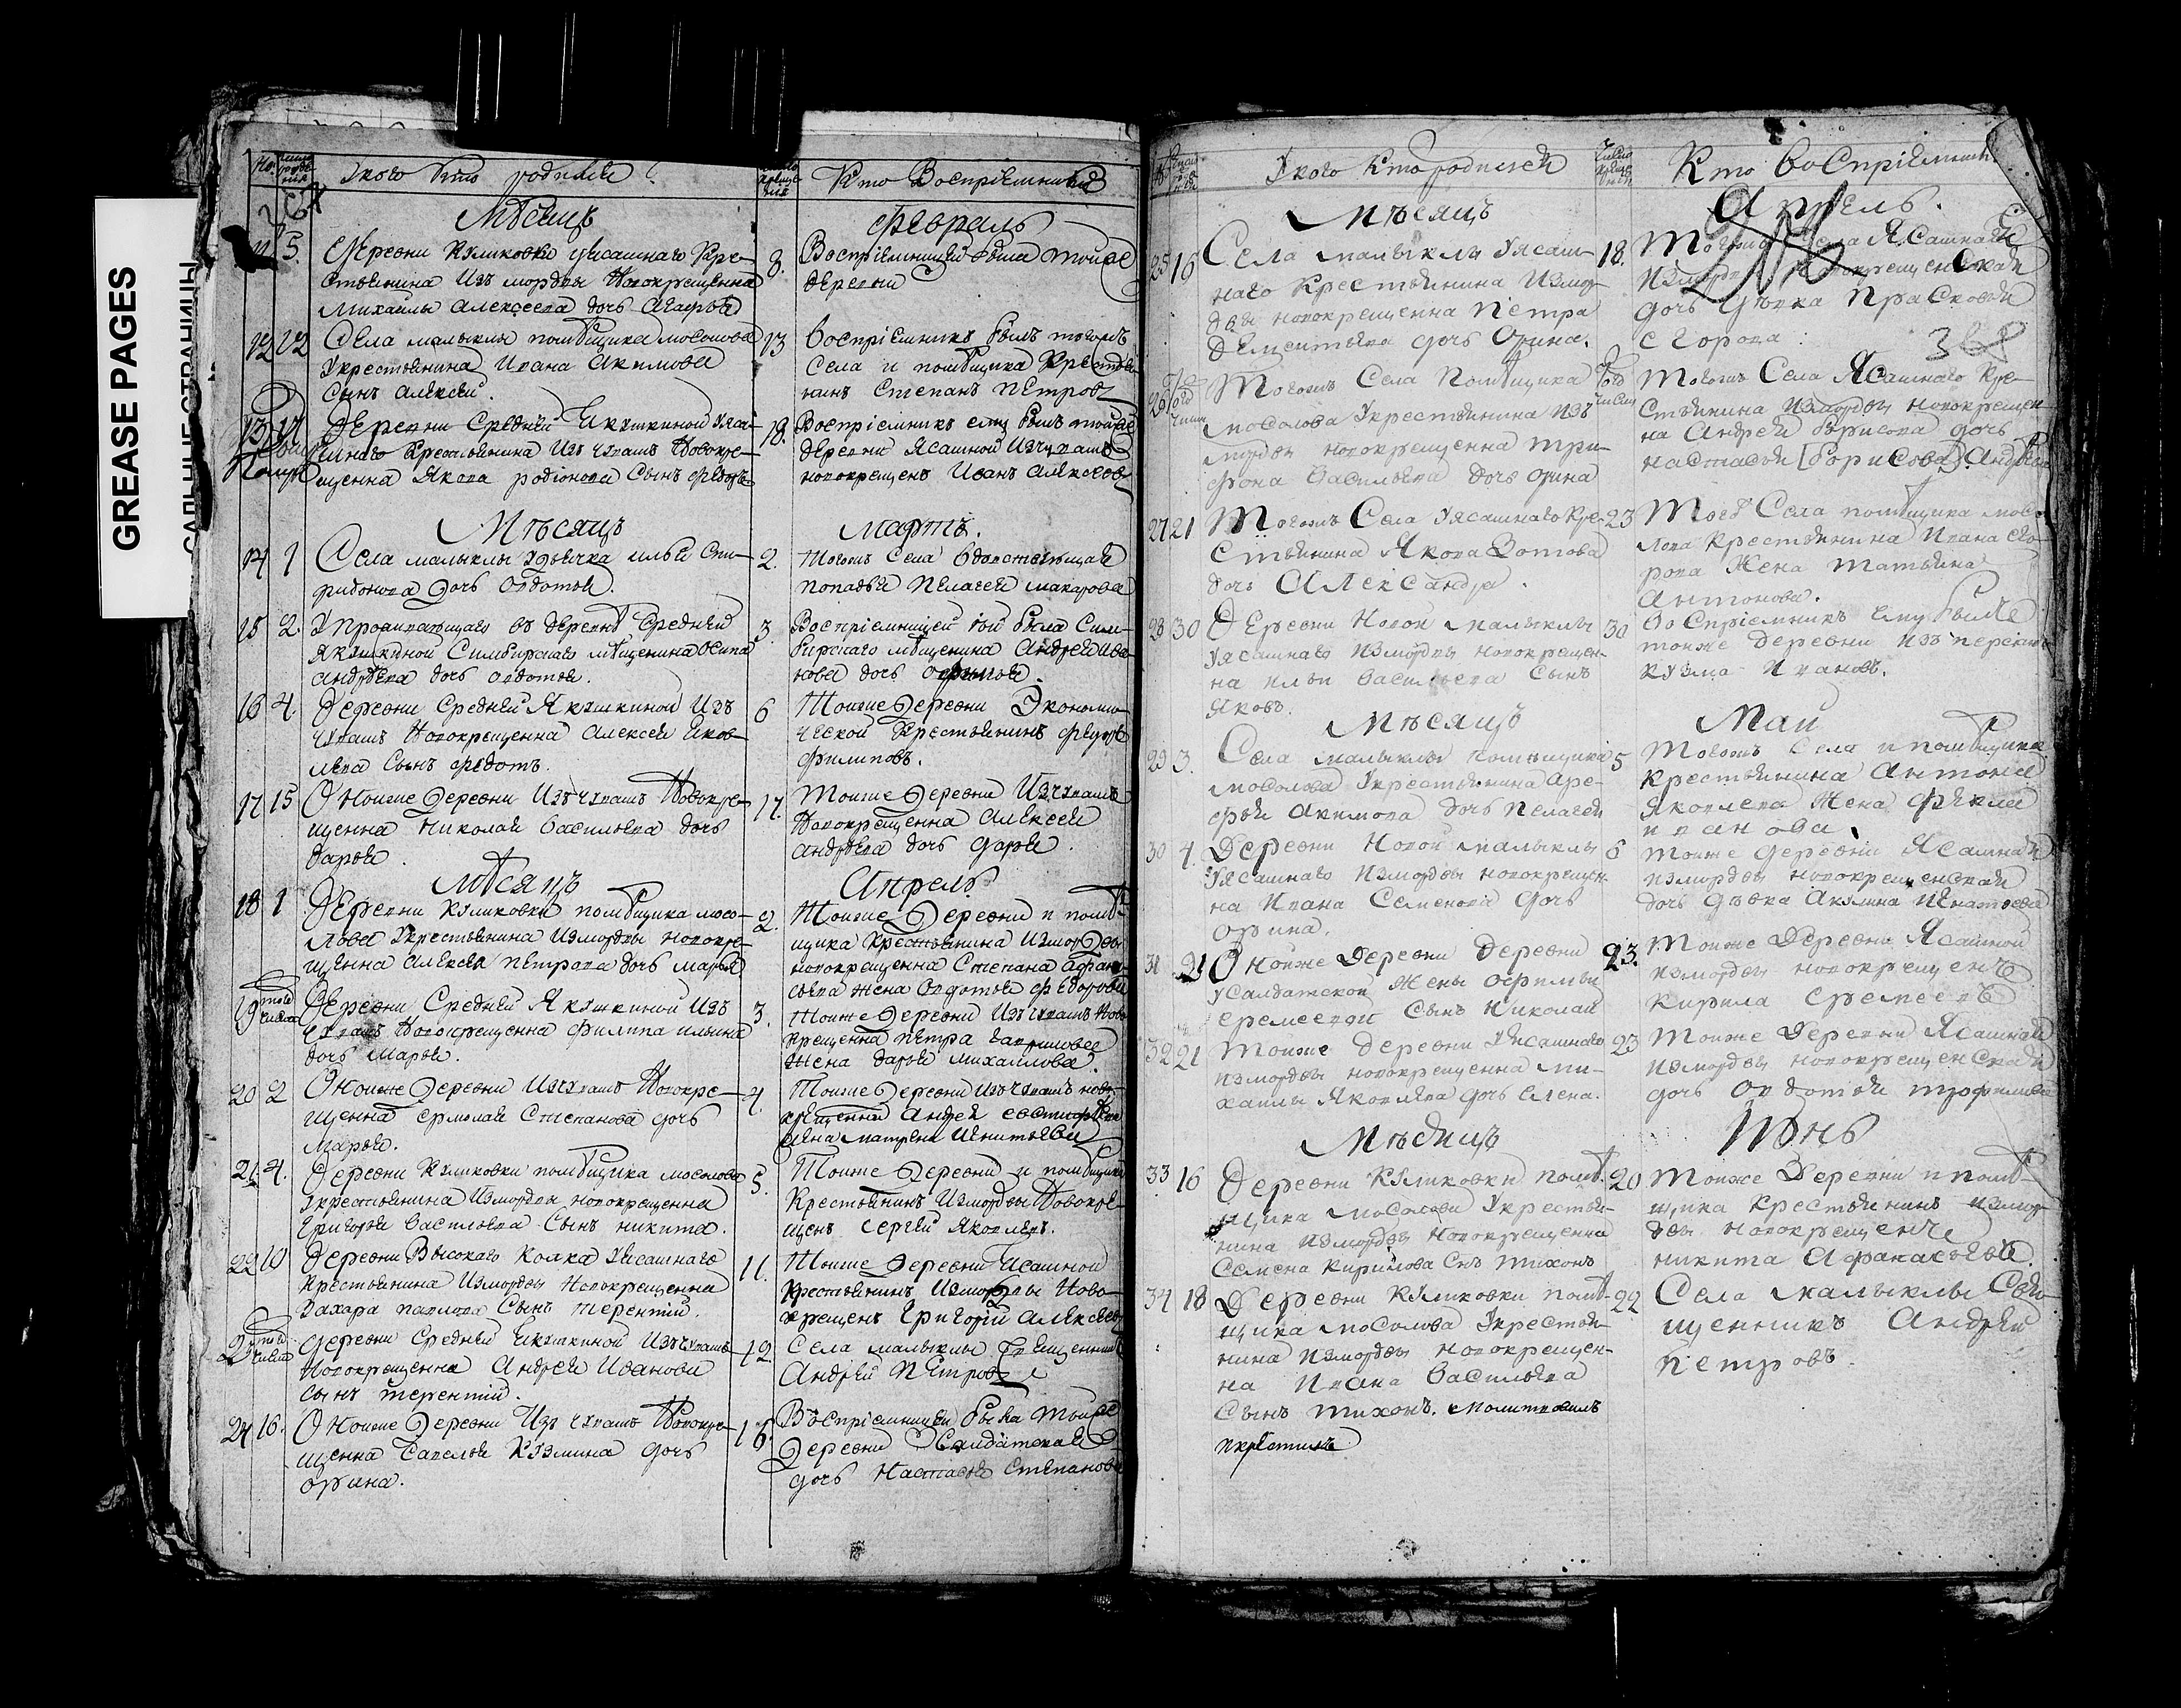 GREASE PAGES
САЛЬНЫЕ СТРАНИЦЫ
Но.
число рожде ния
Укого Кто родился
крще ния
Кто Восприемники
Мѣсяцъ
Февраль
11 5
Деревни Куликовки уясашнаго Кре-
стьянина Изъ мордвы Новокрещенна
Михаилы Алексеева дочь Агафья
8.
Восприемницей была тойже
деревни
12 12
Села малыклы помѣщика мосолова
Укрестьянина Ивана Акимова
Сынъ Алексей.
13
Восприемникъ былъ тогожъ
Села и помѣщика Крестья-
нинъ Степанъ Петровъ
13 17
Деревни Средней Якушкиной Уяса-
шнаго Крестьянина Изъ чувашъ Новокре-
щенна Якова родионова Сынъ Федоръ
18.
Восприемникъ ему былъ тойже
деревни Ясашной Изчувашъ
новокрещенъ Иванъ Алексеевъ
Мѣсяцъ
Мартъ.
14 1
Села малыклы Удьячка ильи Спи-
ридонова Дочь Овдотья.
2.
Тогожъ Села вдовствующая
попадья Пелагея макарова
15 2.
Упроживающаго въ деревнѣ Средней
Якушкиной Симбирскаго мѣщенина Осипа
андрѣева дочь овдотья.
3.
Восприемницей той была Сим-
бирскаго мѣщенина Андрея Ива-
нова дочь
16 4.
Деревни Средней Якушкиной Изъ
чувашъ Новокрещенна Алексея Яков-
лева Сынъ федотъ.
6
Тоиже Деревни Экономи-
ческой Крестьянинъ федоръ
филиповъ.
17 15
Оноиже Деревни Изъ чувашъ Новокре-
щенна Николая Васильева дочь
Дарья.
17.
Тоиже Деревни Изчувашъ
Новокрещенна Алексея
андрѣева дочь дарья.
Мѣсяцъ
Апрель
18 1
Деревни Куликовки помѣщика мосо-
лова Укрестьянина Измордвы новокре-
щенна Алексея Петрова дочь марья
2.
Тоиже Деревни и помѣ-
щика Крестьянина Измордвы
новокрещенна Степана афана-
сьева жена Овдотья федорова
19 того числа
Деревни Средней Якушкиной Изъ
чувашъ Новокрещенна филипа ильина
дочь Марья.
3.
Тоиже Деревни Изъ чувашъ Ново
крещенна Петра Гавриловва
жена Дарья Михаилова.
20 2
Оноиже Деревни Изчувашъ Новокре-
щенна Ермолая Степанова дочь
Марья.
4.
Тоиже Деревни Изъ чувашъ ново-
крещенна Андрея
жена матрена Игнатьева
21. 4.
Деревни Куликовки помѣщика мосолова
Укрестьянина Измордвы новокрещенна
Григорья Васильева Сынъ никита.
5.
Тоиже Деревни и помѣщика
Крестьянинъ Измордвы Новокре-
щенъ Сергей Яковлевъ.
22 10
Деревни Высокаго Колка Уясашнаго
Крестьянина Измордвы Новокрещенна
Захара павлова Сынъ терентий.
11.
Тоиже Деревни Ясашной
Крестьянинъ Измордвы Ново-
крещенъ Григорий Алексеевъ
23 того числа
Деревни Средней Якушкиной Изъчувашъ
Новокрещенна Андрея Иванова
сынъ терентий.
12
Села малыклы Священникъ
Андрей Петровъ
24 16.
Оноиже Деревни Изъ чувашъ Новокре-
щенна Савелья Кузмина дочь
орина.
18
Восприемницей была Тоиже
Деревни Салдатская
дочь Настасья Степанова
Укого Кто родился
Число крще ния
Кто Восприемники
Мѣсяцъ
Апрель.
25 16
Села малыклы Уясаш-
наго Крестьянина Измор-
двы новокрещенна Петра
Дементьева дочь Орина.
18.
Тогожъ Села Ясашная
дочь дѣвка Прасковья
Егорова
368
26 того числа
Тогожъ Села Помѣщика
мосолова Укрестьянина изъ
мордвы новокрещенна Три-
фона Васильева дочь Орина
того числа
Тогожъ Села Ясашнаго Кре-
стьянина Измордвы новокрещен-
на Андрея Борисова дочь
настасья [борисова] Андрѣева
27 21
Тогожъ Села Уясашнаго Кре-
стьянина Якова Зотова
дочь Александра.
23
Тогожъ Села помѣщика мосо-
лова Крестьянина Ивана его-
рова Жена Татьяна
Антонова.
28 30
Деревни Новой малыклы
Уясашнаго Измордвы новокрещен-
на ильи Васильева Сынъ
Яковъ.
30
Восприемникъ ему былъ
тоиже Деревни
Кузма Ивановъ.
Мѣсяцъ
Маи
29 3.
Села малыклы помѣщика
мосолова Укрестьянина аре-
фья Акимова дочь Пелагея
5
Тогожъ Села и помѣщика
Крестьянина Антона
Яковлева Жена Фекла
иванова.
30 4.
Деревни Новой малыклы
Уясашнаго Измордвы новокрещен-
на Ивана Семенова дочь
орина.
6
Тоиже Деревни Ясашная
измордвы новокрещенская
дочь дѣвка Акулина Игнатьева
31 21
Оноиже Деревни Деревни
Усалдатской Жены офимьи
еремеевой Сынъ Николай
23.
Тоиже Деревни Ясашной
измордвы новокрещенъ
Кирила Еремеевъ
32 21
Тоиже Деревни Уясашнаго
измордвы новокрещенна ми-
хаилы Яковлева дочь Елена.
23
Тоиже Деревни Ясашная
измордвы новокрещенская
дочь Овдотья трофимова
Мѣсяцъ
Июнь
33 16
Деревни Куликовки помѣ-
щика мосолова Укрестья-
нина измордвы Новокрещенна
Семена Кирилова Снъ Тихонъ
20
Тоиже Деревни и помѣ-
щика Крестьянинъ измор-
двы Новокрещенъ
никита Афанасьевъ.
34 18
Деревни Куликовки помѣ-
щика мосолова Укрестья-
нина измордвы новокрещен-
на Ивана Васильева
Сынъ Тихонъ. Молитвилъ
икрестилъ
22
Села малыклы Свя-
щенникъ Андрей
Петровъ.